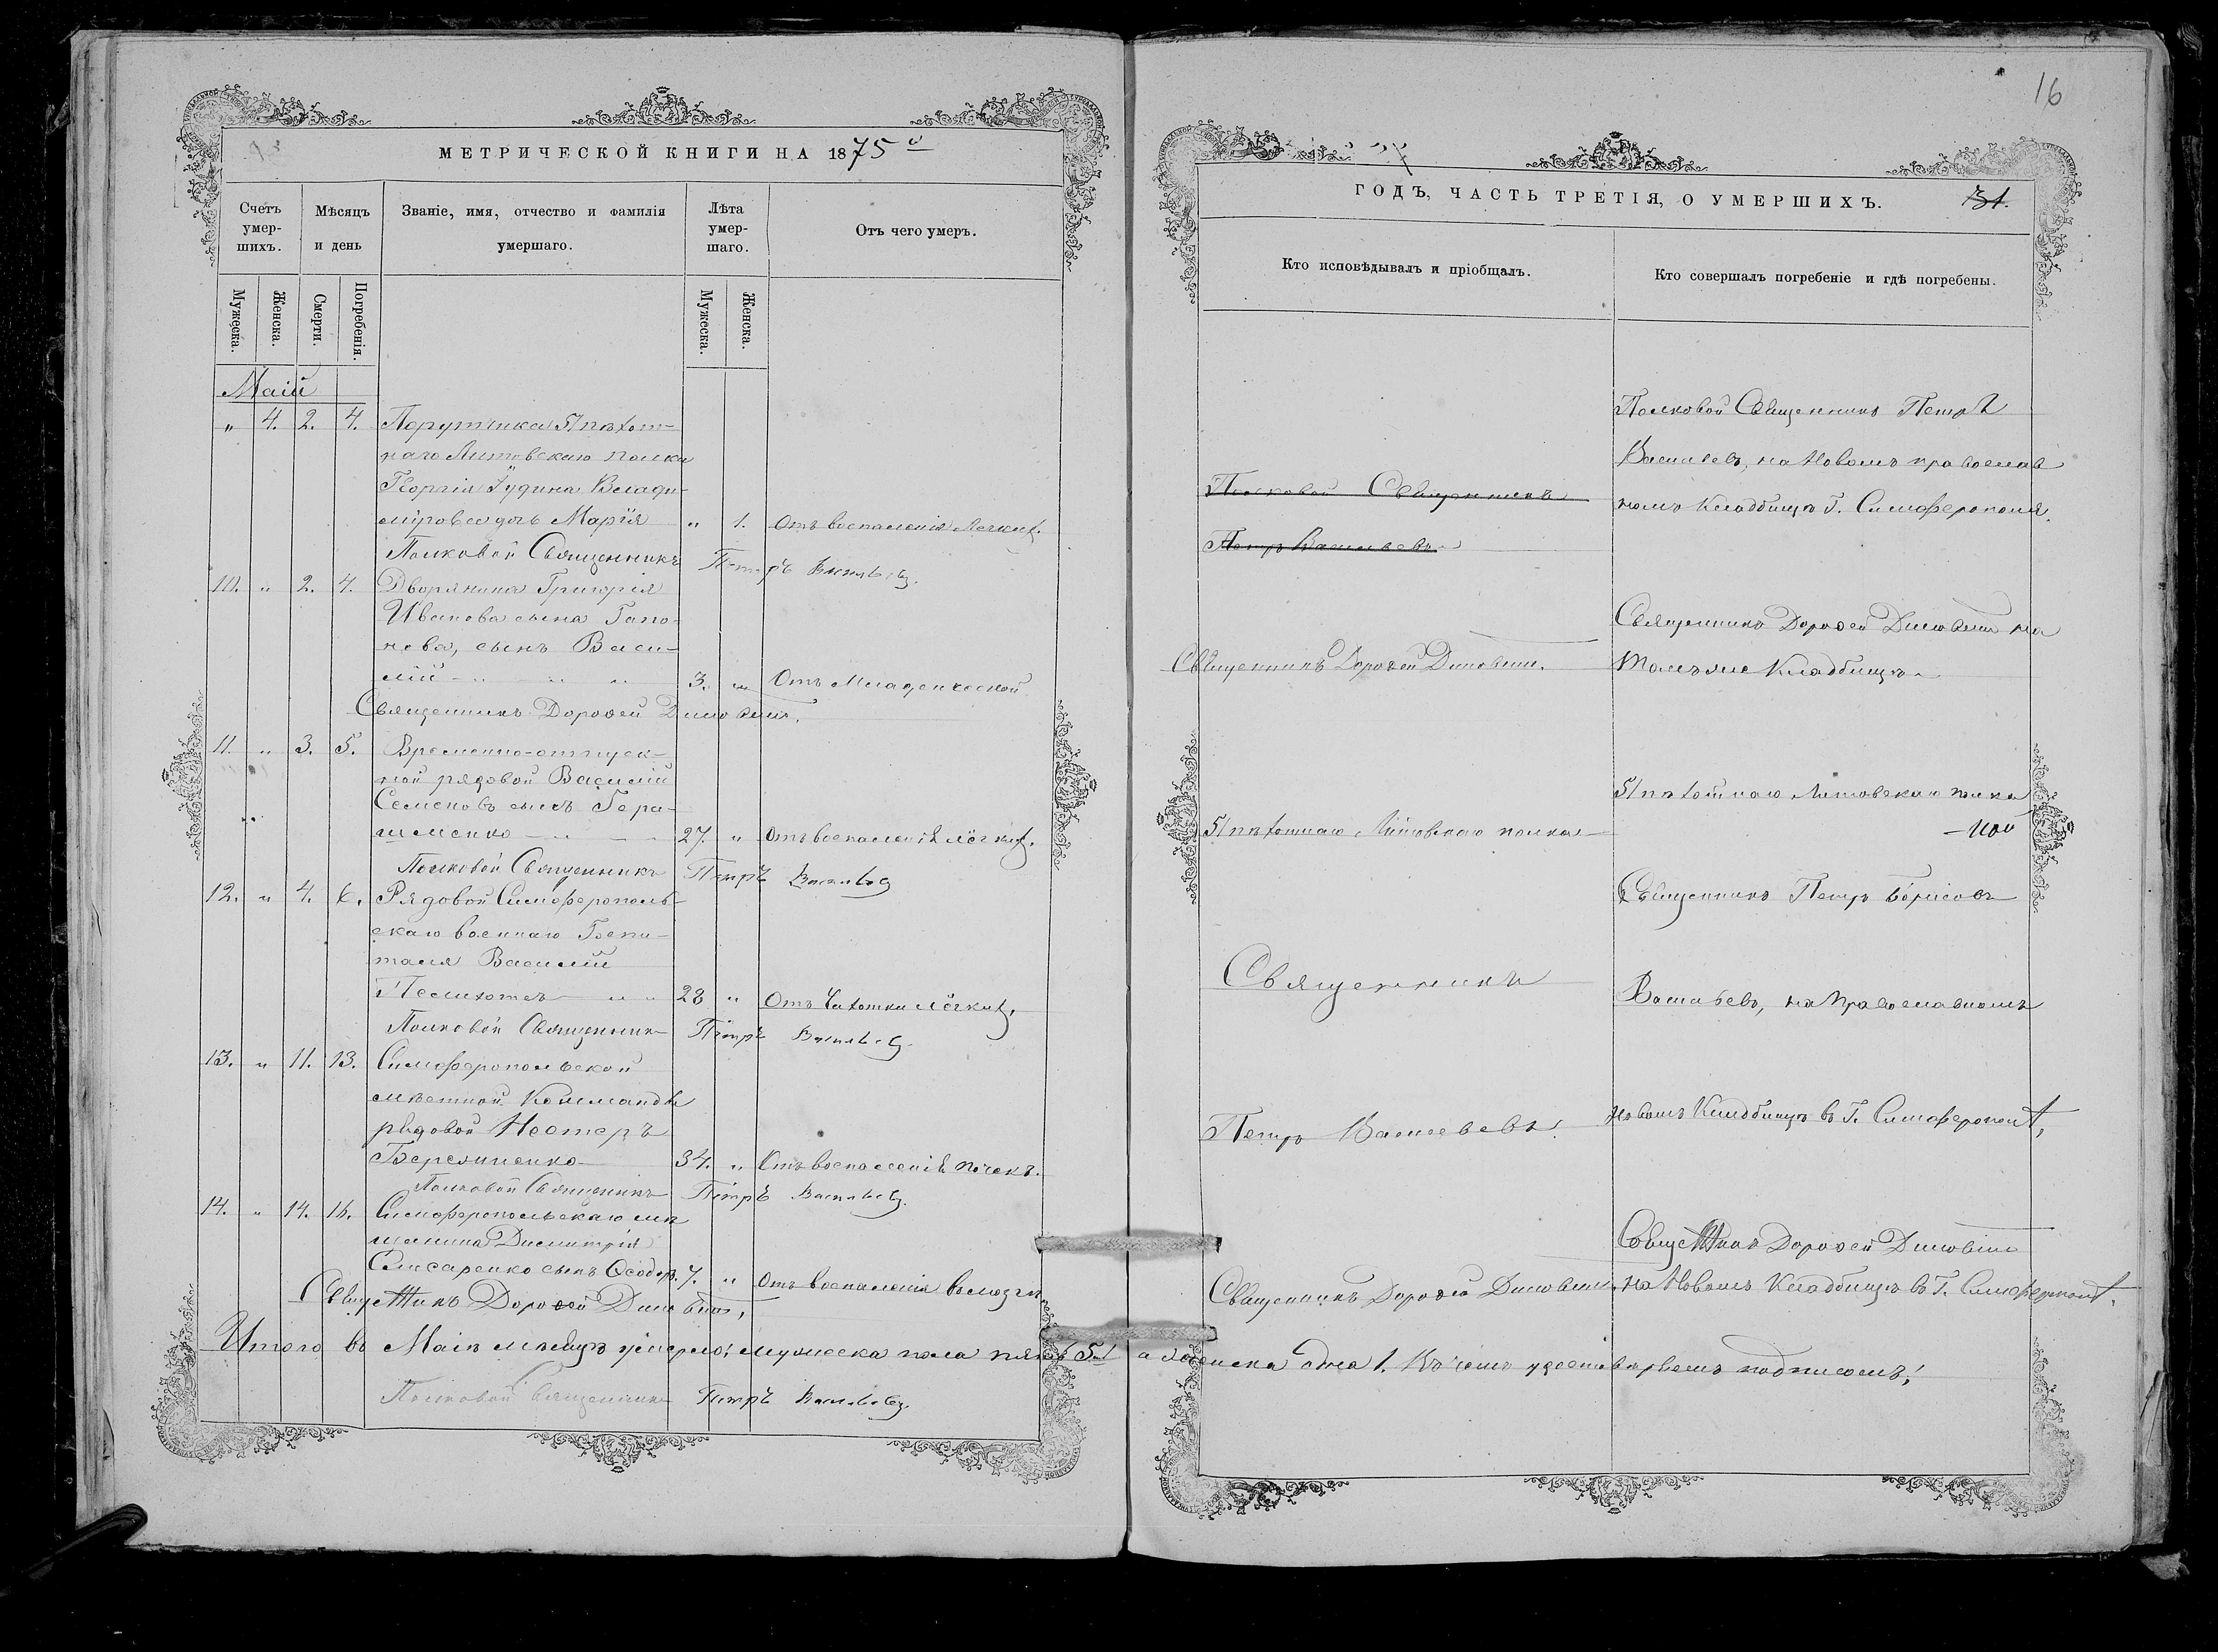 МЕТРИЧЕСКОЙ КНИГИ НА 1875й
Счетъ умер-шихъ.
Мѣсяцъ и день
Званіе, имя, отчество и фамилія умершаго.
Лѣта умер-шаго.
Отъ чего умеръ.
Мужеска.
Женска.
Смерти.
Погребенія.
Мужеска.
Женска.
Маій
" 4. 2. 4. Порутчика 51 пѣхот-
наго Литовскаго полка
Георгія Владi-
мірова дочь Марія " 1. Отъ воспаленія легкихъ.
Полковой Священникъ Петръ Васильевъ.
10. " 2. 4. Дворянина Григорія
Иванова сына Гапо-
нова, сынъ Васи-
лій 3. " Отъ Младенческой
Священникъ Дорофей
11. " 3. 5. Временно-отпуск-
ной рядовой Василій
Семеновъ сынъ Гера-
шменко 27. " Отъ воспаленія лёгкихъ.
Полковой Священникъ Петръ Васильевъ
12. " 4. 6. Рядовой Симферополь-
скаго военнаго Госпи-
таля Василій
28 " Отъ Чахотки лёгкихъ,
Полковой Священникъ Петръ Васильевъ.
13. " 11. 13. Симферопольской
мѣстной Комманды
рядовой Нестеръ
Березиненко 34. " Отъ воспаленія почекъ.
Полковой Священникъ Петръ Васильевъ.
14. " 14. 16. Симферопольскаго мѣ
щанина Димитрія
Слисаренко сынъ Ѳеодоръ. 7. " Отъ воспаленія въ мозгу,
Священникъ Дорофей
Итого въ Маіѣ мѣсяцѣ умерло: мужеска пола пять 5. а женска одна 1. Въ чемъ удостовѣряемъ подписомъ:
Полковой Священникъ Петръ Васильевъ.
16
ГОДЪ, ЧАСТЬ ТРЕТІЯ, О УМЕРШИХЪ. 31.
Кто исповѣдывалъ и пріобщалъ.
Кто совершалъ погребеніе и гдѣ погребены.
Полковой Священникъ
Петръ Васильевъ
Полковой Священникъ Петръ
Васильевъ, на Новомъ православ
номъ Кладбищѣ Г. Симферополя.
Священникъ Дорофей
Священникъ Дорофей на
томъ же Кладбищѣ
51 пѣхотнаго Литовскаго полка
51 пѣхотнаго Литовскаго полка
Священникъ
Священникъ Петръ Борисовъ
Васильевъ, на Православномъ
Петръ Васильевъ.
новомъ Кладбищѣ въ Г. Симферополѣ,
Священникъ Дорофей
Священникъ Дорофей
на Новомъ Кладбищѣ въ Г. Симферополѣ.